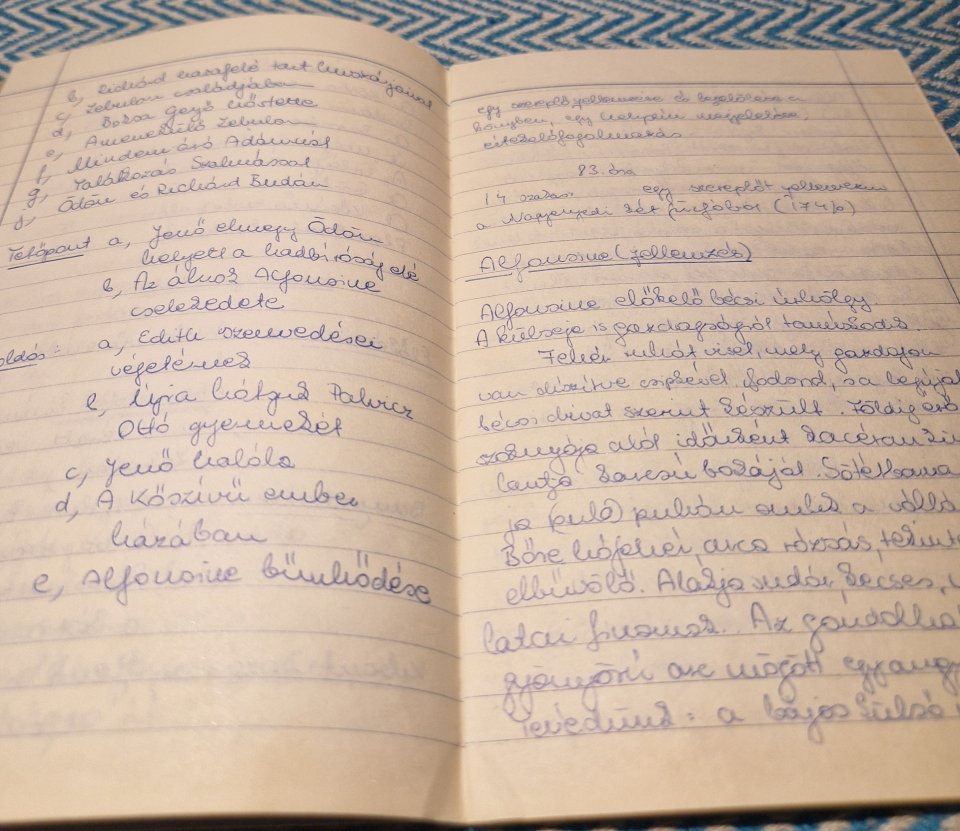 b, Richárd hazafelé tart huszárjaival
c, Zebulon családjában
d, Boksa Gergő hőstette
e, A menekülő Zebulon
f, Mindenváró Ádámnál
g, Találkozás Szalmással
j, Ödön és Richárd Budán
Tetőpont a, Jenő elmegy Ödön
helyett a hadbíróság elé
b, Az álnok Alfonsine
cselekedete
oldás: a, Edith szenvedései
végetérnek
b, Újra hátgut Palvicz
Ottó gyermekét
c, Jenő halála
d, A Kőszívű ember
házában
e, Alfonsine bűnhődése
egy szereplő jellemzése és
könyvben, egy helyszín megjelölése,
értekezőfogalmazás
83. óra
14 szakasz egy szereplőt jellemezni
a Nagyenyedi két fűzfából (174/b)
Alfonsine (jellemzés)
Alfonsine előkelő bécsi úrhölgy
A külseje is gazdagságról tanúskodik.
Fehér ruhát visel, mely gazdagon
van díszítve csipkével, fodorral, s a legújabb
bécsi divat szerint készült. Földig érő
szoknyája alól időnként kacéran
lantja karcsú bokáját. Sötétbarna
ja (puló) puhán omlik a válla
Bőre hófehér, arca rózsás, tekinte
elbűvölő. Alakja sudár, kecses,
latai finomak. Az gondolha
gyönyörű arc mögött egy ang
Tévedünk: a bájos külső